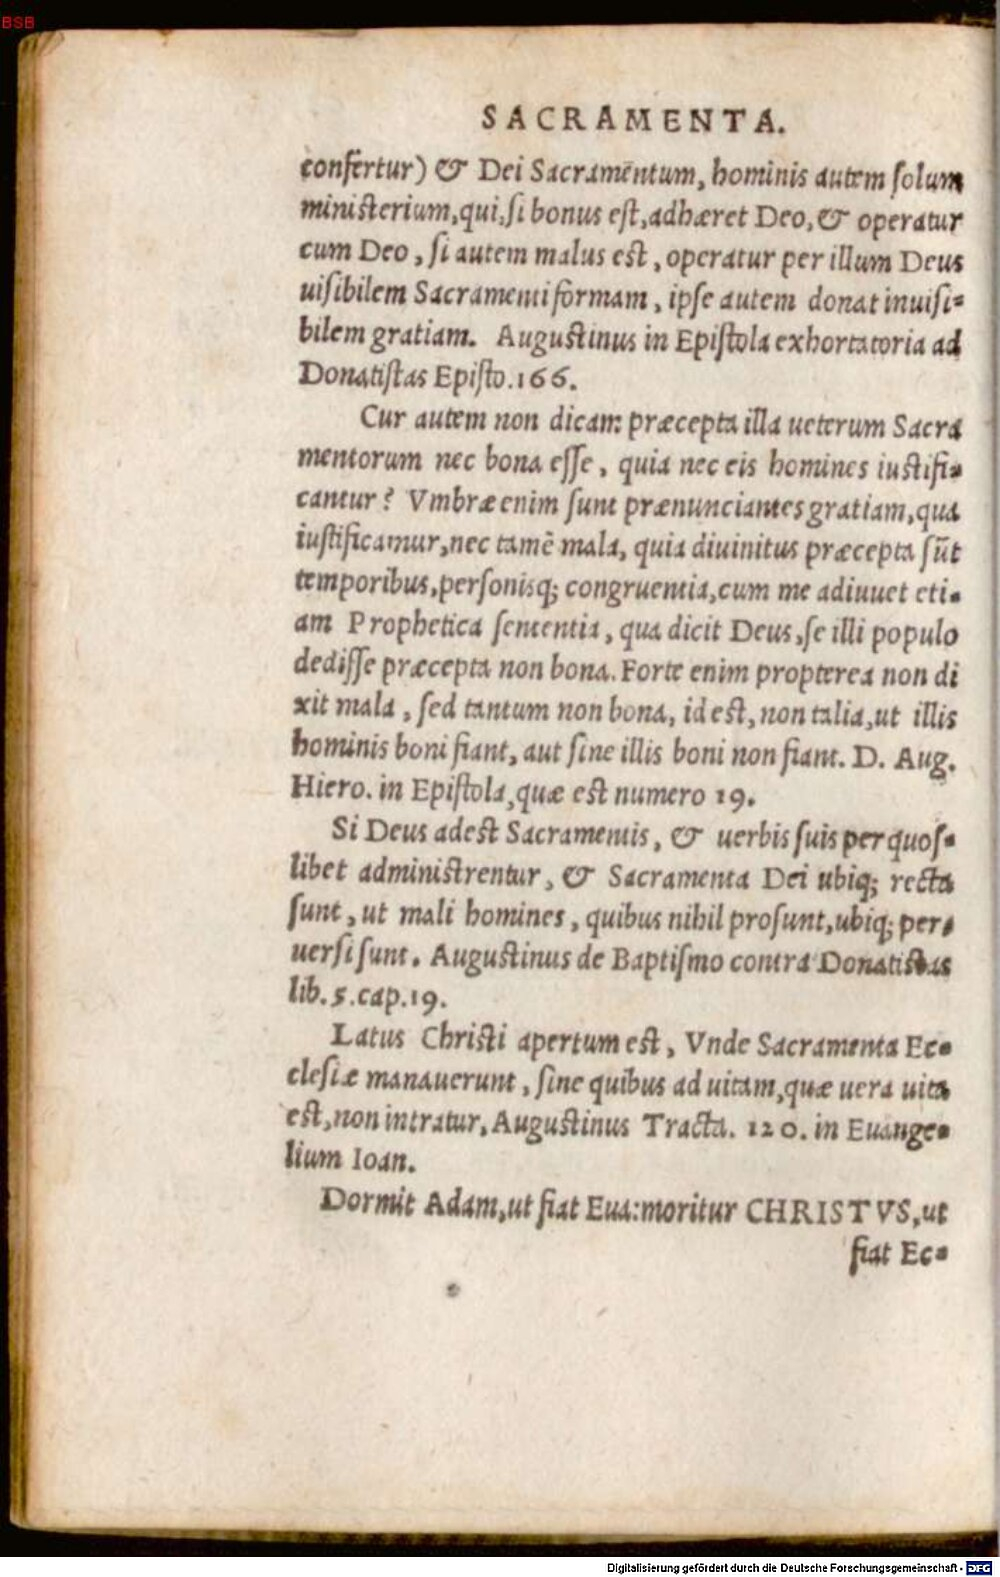 BSB
SACRAMENTA.
confertur) & Dei Sacramēntum, hominis autem solum
ministerium, qui, si bonus est, adhæret Deo, & operatur
cum Deo, si autem malus est, operatur per illum Deus
uisibilem Sacramenti formam, ipse autem donat inuisi-
bilem gratiam. Augustinus in Epistola exhortatoria ad
Donatistas Episto. 166.
Cur autem non dicam præcepta illa ueterum Sacra
mentorum nec bona esse, quia nec eis homines iustifi-
cantur? Vmbræ enim sunt prænunciantes gratiam, qua
iustificamur, nec tamē mala, quia diuinitus præcepta sūt
temporibus, personisq; congruentia, cum me adiuuet eti-
am Prophetica sententia, qua dicit Deus, se illi populo
dedisse præcepta non bona. Forte enim propterea non di
xit mala, sed tantum non bona, id est, non talia, ut illis
hominis boni fiant, aut sine illis boni non fiant. D. Aug.
Hiero. in Epistola, quæ est numero 19.
Si Deus adest Sacramentis, & uerbis suis per quos-
libet administrentur, & Sacramenta Dei ubiq; recta
sunt, ut mali homines, quibus nihil prosunt, ubiq; per-
uersi sunt. Augustinus de Baptismo contra Donatistas
lib. 5. cap. 19.
Latus Christi apertum est, Vnde Sacramenta Ec-
clesiæ manauerunt, sine quibus ad uitam, quæ uera uita
est, non intratur, Augustinus Tracta. 120. in Euange-
lium Ioan.
Dormit Adam, ut fiat Eua: moritur CHRISTVS, ut
fiat Ec-
Digitalisierung gefördert durch die Deutsche Forschungsgemeinschaft - DFG